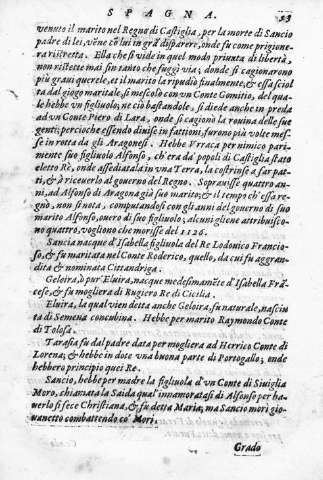 SPAGNA. 53
venuto il marito nel Regno di Castiglia, per la morte di Sancio
padre di lei, vẽne cõ lui in grã dispareri, onde fu come prigione-
ra ristretta. Ella che si vide in quel modo priunta di libertà,
non ristette mai sin tanto che fuggì via; donde si cagionarono
più gran querele, et il marito la ripudiò finalmente, & essa sciol
ta dal giogo maritale, si mescolò con vn Conte Gomitio, del qua-
le hebbe vn figliuolo; ne ciò bastandole, si diede anche in preda
ad vn Conte Piero di Lara, onde si cagionò la rouina delle sue
genti; percioche essendo diuise in fattioni, furono più volte mes-
se in rotta da gli Aragonesi. Hebbe Vrraca per nimico pari-
mente suo figliuolo Alfonso, ch'era da' popoli di Castiglia stato
eletto Rè, onde assediatala in vna Terra, la costrinse a far pat-
ti, & à riceuerlo al gouerno del Regno. Soprauisse quattro an-
ni, ad Alfonso di Aragona già suo marito; & il tempo ch'essa re-
gnò, non si nota, computandosi con gli anni del gouerno di suo
marito Alfonso, ouero di suo figliuolo; alcuni gliene attribuisco-
no quattro, vogliono che morisse del 1126.
Sancia nacque d'Isabella figliuola del Re Lodouico Francio-
so, & fu maritata nel Conte Roderico, quello, da cui fu aggran-
dita & nominata Cittandriga.
Geloira, ò pur' Eluira, nacque medesimamẽte d'Isabella Frã-
cese, & fu mogliera di Rugiero Re di Cicilia.
Eluira, la qual vien detta anche Geloira, fu naturale, nasciu
ta di Semena concubina. Hebbe per marito Raymondo Conte
di Tolosa.
Tarasia fu dal padre data per mogliera ad Herrico Conte di
Lorena; & hebbe in dote vna buona parte di Portogallo; onde
hebbero principio quei Re.
Sancio, hebbe per madre la figliuola d'vn Conte di Siuiglia
Moro, chiamata la Saida qual innamoratasi di Alfonso per ha-
uerlo si fece Christiana, & fu detta Maria; ma Sancio morì gio-
uanetto combattendo co' Mori.
Grado